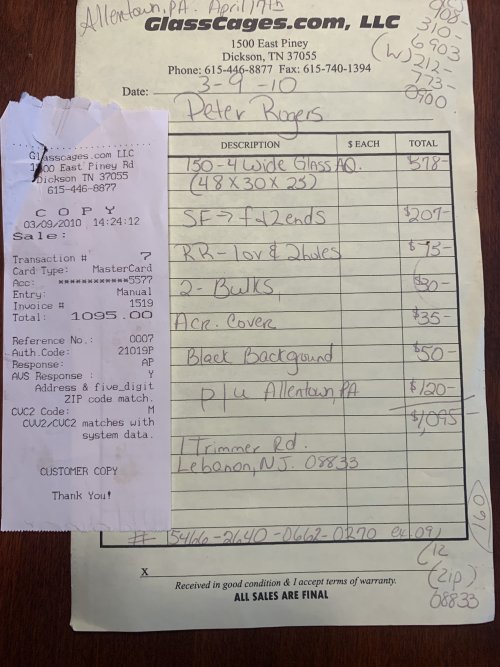 Allentown, PA. April 17th
GlassCages.com, LLC
1500 East Piney
Dickson, TN 37055
Phone: 615-446-8877 Fax: 615-740-1394
908-
310-
6903
(W) 212-
773-
0900
Date: 3-9-10
Peter Rogers
DESCRIPTION $ EACH TOTAL
150-4 Wide Glass AQ. $578-
(48X30X25)
SF → f & 2 ends $207-
RR-1 ov & 2 holes $75-
2- Bulks, $30-
Acr. Cover $35-
Black Background $50-
p/u Allentown, PA $120-
$1,095-
1 Trimmer Rd.
Lebanon, N.J. 08833
# [card number and security details omitted]
(zip)
08833
X
Received in good condition & I accept terms of warranty.
ALL SALES ARE FINAL
Glasscages.com LLC
1500 East Piney Rd
Dickson TN 37055
615-446-8877
COPY
03/09/2010 14:24:12
Sale:
Transaction # 7
Card Type: MasterCard
Acc: ************5577
Entry: Manual
Invoice # 1519
Total: 1095.00
Reference No.: 0007
Auth.Code: 21019P
Response: AP
AVS Response : Y
Address & five_digit
ZIP code match.
CVC2 Code: M
CVV2/CVC2 matches with
system data.
CUSTOMER COPY
Thank You!